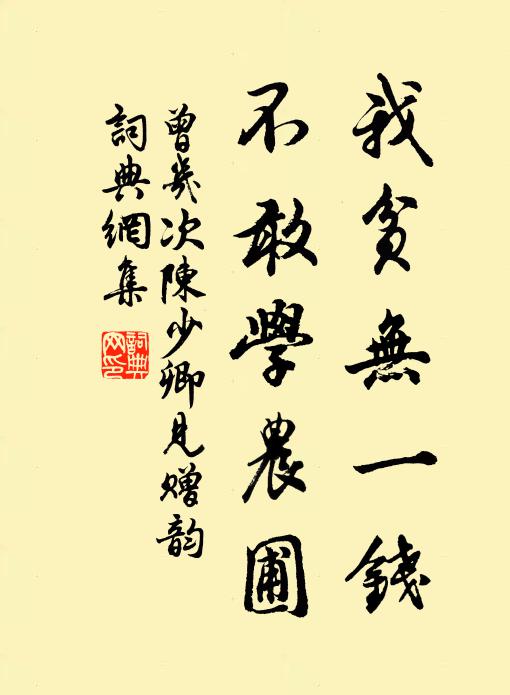 我貧無一錢
不敢學農圃
曾幾次陳少卿見贈韵
詞典網集
詞典网印